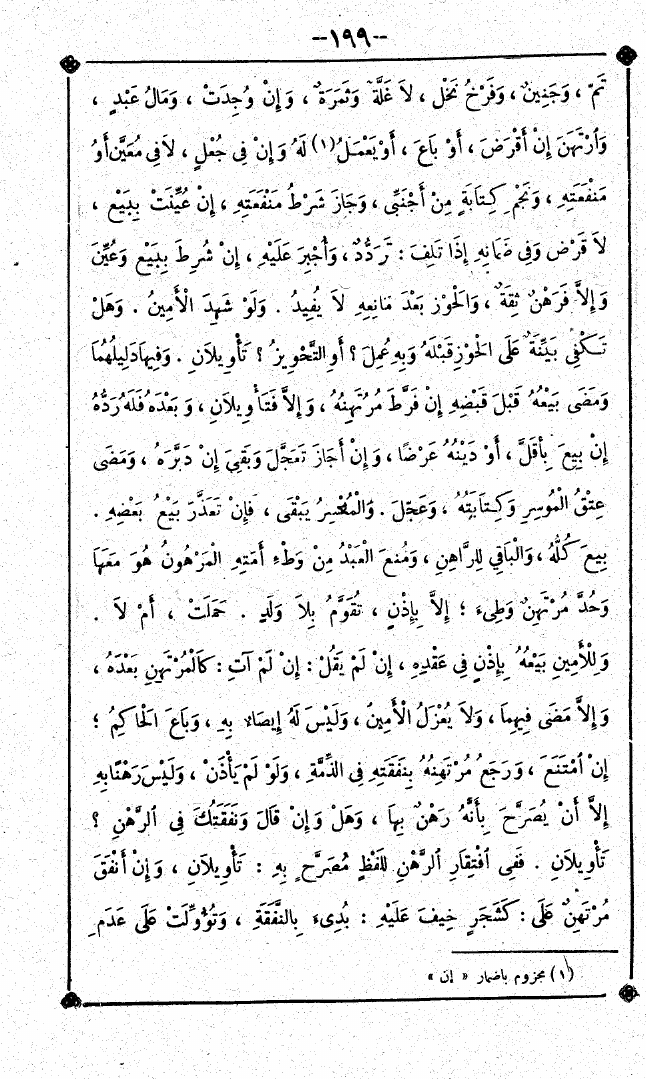 --١٩٩--
تَمَّ ، وَجَنِينٌ ، وَفَرْخُ نَخْلٍ ، لاَ غَلَّةٌ وَثَمَرَةٌ ، وَإِنْ وُجِدَتْ ، وَمَالُ عَبْدٍ ،
وَٱرْتَهَنَ إِنْ أَقْرَضَ ، أَوْ بَاعَ ، أَوْ يَعْمَلُ(١) لَهُ وَإِنْ فِى جُعْلٍ ، لاَ فِى مُعَيَّنٍ أَوْ
مَنْفَعَتِهِ ، وَنَجْمِ كِتَابَةٍ مِنْ أَجْنَبِىٍّ ، وَجَازَ شَرْطُ مَنْفَعَتِهِ ، إِنْ عُيِّنَتْ بِبَيْعٍ ،
لاَ قَرْضٍ وَفِى ضَمَانِهِ إِذَا تَلِفَ : تَرَدُّدٌ ، وَأُجْبِرَ عَلَيْهِ ، إِنْ شُرِطَ بِبَيْعٍ وَعُيِّنَ
وَإِلاَّ فَرَهْنٌ ثِقَةٌ ، وَالْحَوْزُ بَعْدَ مَانِعِهِ لاَ يُفِيدُ . وَلَوْ شَهِدَ الْأَمِينُ . وَهَلْ
تَكْفِى بَيِّنَةٌ عَلَى الْحَوْزِ قَبْلَهُ وَبِهِ عُمِلَ ؟ أَوِ التَّحْوِيزُ ؟ تَأْوِيلاَنِ . وَفِيهَا دَلِيلُهُمَا
وَمَضَى بَيْعُهُ قَبْلَ قَبْضِهِ إِنْ فَرَّطَ مُرْتَهِنُهُ ، وَإِلاَّ فَتَأْوِيلاَنِ ، وَبَعْدَهُ فَلَهُ رَدُّهُ
إِنْ بِيعَ بِأَقَلَّ ، أَوْ دَيْنُهُ عَرْضًا ، وَإِنْ أَجَازَ تَعَجَّلَ وَبَقِىَ إِنْ دَبَّرَهُ ، وَمَضَى
عِتْقُ الْمُوسِرِ وَكِتَابَتُهُ ، وَعَجَّلَ . وَالْمُعْسِرُ يَبْقَى ، فَإِنْ تَعَذَّرَ بَيْعُ بَعْضِهِ .
بِيعَ كُلُّهُ ، وَالْبَاقِي لِلرَّاهِنِ ، وَمُنِعَ الْعَبْدُ مِنْ وَطْءِ أَمَتِهِ الْمَرْهُونُ هُوَ مَعَهَا
وَحُدَّ مُرْتَهِنٌ وَطِىءَ ؛ إِلاَّ بِإِذْنٍ ، تُقَوَّمُ بِلاَ وَلَدٍ . حَمَلَتْ ، أَمْ لاَ .
وَلِلْأَمِينِ بَيْعُهُ بِإِذْنٍ فِى عَقْدِهِ ، إِنْ لَمْ يَقُلْ : إِنْ لَمْ آتِ : كَالْمُرْتَهِنِ بَعْدَهُ ،
وَإِلاَّ مَضَى فِيهِمَا ، وَلاَ يُعْزَلُ الْأَمِينُ ، وَلَيْسَ لَهُ إِيصَاءٌ بِهِ ، وَبَاعَ الْحَاكِمُ ؛
إِنْ ٱمْتَنَعَ ، وَرَجَعَ مُرْتَهِنُهُ بِنَفَقَتِهِ فِى الذِّمَّةِ ، وَلَوْ لَمْ يَأْذَنْ ، وَلَيْسَ رَهْنًا بِهِ
إِلاَّ أَنْ يُصَرِّحَ بِأَنَّهُ رَهْنٌ بِهَا ، وَهَلْ وَإِنْ قَالَ وَنَفَقَتُكَ فِى الرَّهْنِ ؟
تَأْوِيلاَنِ . فَفِى افْتِقَارِ الرَّهْنِ لِلَفْظٍ مُصَرَّحٍ بِهِ : تَأْوِيلاَنِ ، وَإِنْ أَنْفَقَ
مُرْتَهِنٌ عَلَى : كَشَجَرٍ خِيفَ عَلَيْهِ : بُدِىءَ بِالنَّفَقَةِ ، وَتُؤُوِّلَتْ عَلَى عَدَمِ
(١) مجزوم باضمار « إن »